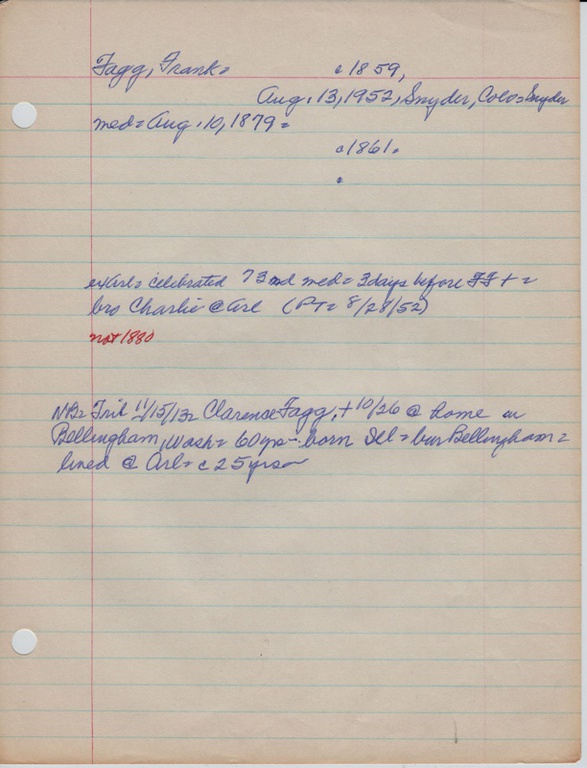 Fagg, Frank= c1859,
Aug. 13, 1952, Snyder, Colo=Snyder
med=Aug. 10, 1879=
c1861.
.
exArl= celebrated 73rd med= 3days before FF+=
bro Charlie @ Arl (PT= 8/28/52)
not 1880
NB= Trib 11/15/13= Clarence Fagg, +10/26 @ home in
Bellingham, Wash= 60 yrs- born Ill= bur Bellingham=
lived @ Arl= c25yrs